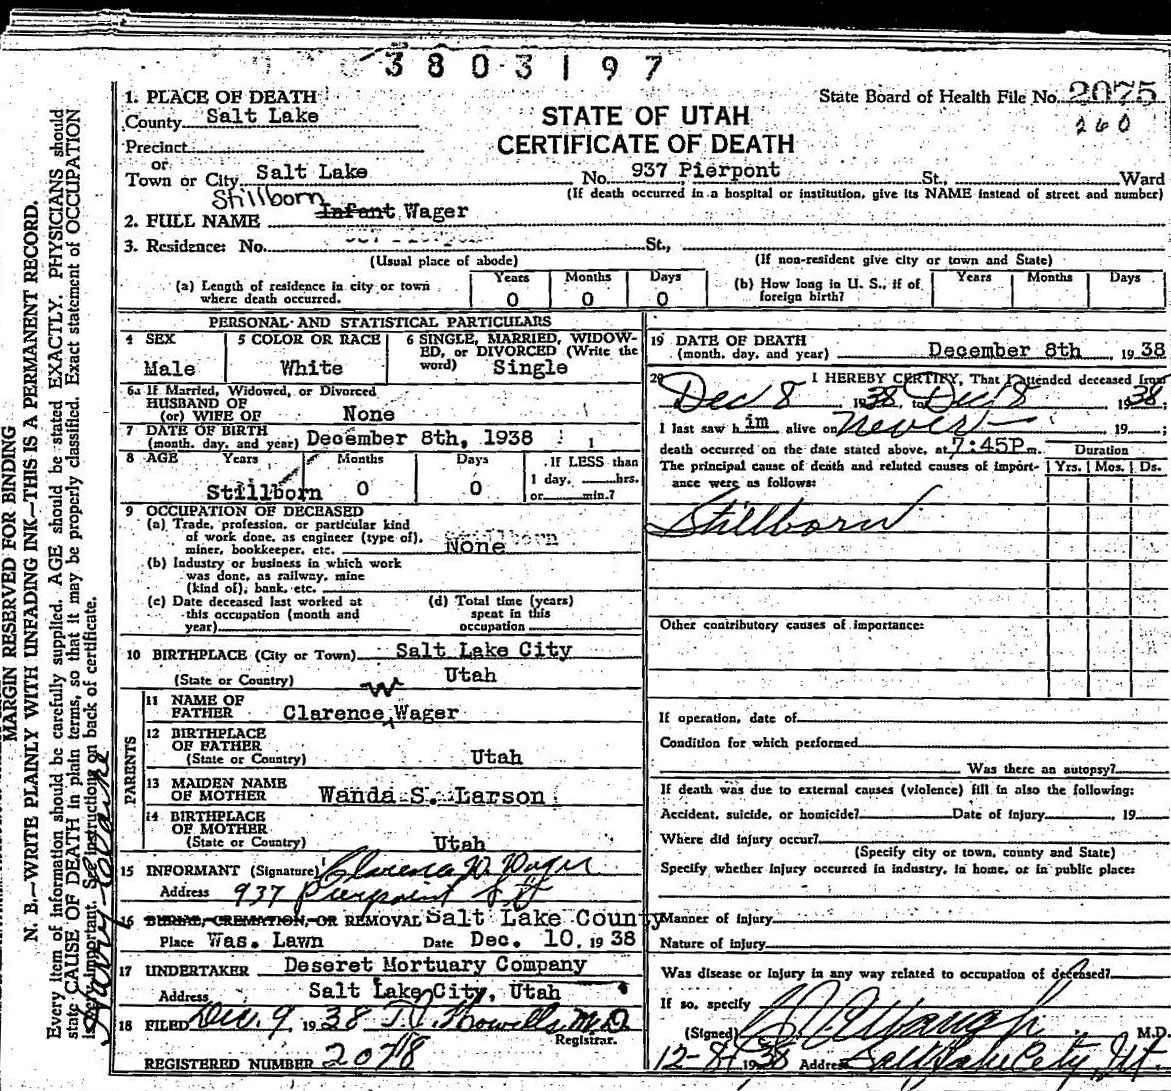 3803197
1. PLACE OF DEATH
State Board of Health File No. 2075
County Salt Lake
STATE OF UTAH
260
Precinct
CERTIFICATE OF DEATH
or
Town or City Salt Lake No. 937 Pierpont St., Ward
(If death occurred in a hospital or institution, give its NAME instead of street and number)
Stillborn
2. FULL NAME Infant Wager
3. Residence: No. St.,
(Usual place of abode) (If non-resident give city or town and State)
(a) Length of residence in city or town where death occurred. Years 0 Months 0 Days 0
(b) How long in U. S., if of foreign birth? Years Months Days
PERSONAL AND STATISTICAL PARTICULARS
4 SEX Male
5 COLOR OR RACE White
6 SINGLE, MARRIED, WIDOW-
ED, or DIVORCED (Write the
word) Single
6a If Married, Widowed, or Divorced
HUSBAND OF
(or) WIFE OF None
7 DATE OF BIRTH
(month, day, and year) December 8th, 1938
8 AGE Years Months Days If LESS than
1 day, hrs.
Stillborn 0 0 or min.?
9 OCCUPATION OF DECEASED
(a) Trade, profession, or particular kind
of work done, as engineer (type of),
miner, bookkeeper, etc. None
(b) Industry or business in which work
was done, as railway, mine
(kind of), bank, etc.
(c) Date deceased last worked at
this occupation (month and
year)
(d) Total time (years)
spent in this
occupation
10 BIRTHPLACE (City or Town) Salt Lake City
(State or Country) Utah
PARENTS
W
11 NAME OF
FATHER Clarence Wager
12 BIRTHPLACE
OF FATHER
(State or Country) Utah
13 MAIDEN NAME
OF MOTHER Wanda S. Larson
14 BIRTHPLACE
OF MOTHER
(State or Country) Utah
15 INFORMANT (Signature) Clarence W. Wager
Address 937 Pierpoint St
16 BURIAL, CREMATION, OR REMOVAL Salt Lake County
Place Was. Lawn Date Dec. 10, 1938
17 UNDERTAKER Deseret Mortuary Company
Address Salt Lake City, Utah
18 FILED Dec. 9 1938 T. J. Howells M.D.
Registrar.
REGISTERED NUMBER 2078
19 DATE OF DEATH
(month, day, and year) December 8th, 1938
20 I HEREBY CERTIFY, That I attended deceased from
Dec 8 1938, to Dec 8 1938;
I last saw h im alive on Never 19 ;
death occurred on the date stated above, at 7:45P m.
Duration
The principal cause of death and related causes of import-
ance were as follows: Yrs. Mos. Ds.
Stillborn
Other contributory causes of importance:
If operation, date of
Condition for which performed
Was there an autopsy?
If death was due to external causes (violence) fill in also the following:
Accident, suicide, or homicide? Date of injury 19
Where did injury occur?
(Specify city or town, county and State)
Specify whether injury occurred in industry, in home, or in public place:
Manner of injury
Nature of injury
Was disease or injury in any way related to occupation of deceased?
If so, specify
(Signed) M.D.
12-8- 1938 Address Salt Lake City, Ut.
MARGIN RESERVED FOR BINDING
N. B.—WRITE PLAINLY WITH UNFADING INK—THIS IS A PERMANENT RECORD.
Every item of information should be carefully supplied. AGE should be stated EXACTLY. PHYSICIANS should
state CAUSE OF DEATH in plain terms, so that it may be properly classified. Exact statement of OCCUPATION
is very important. See instructions on back of certificate.